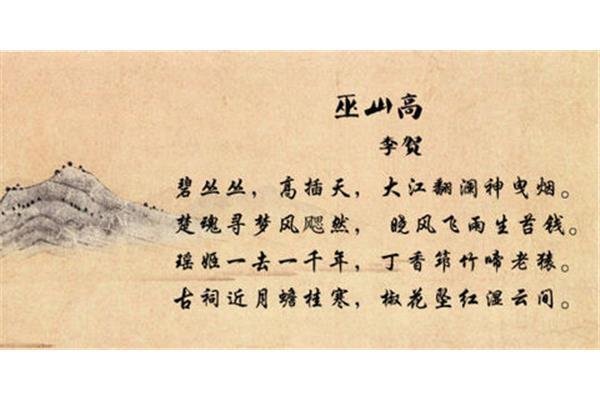 巫山高
李贺
碧丛丛，高插天，大江翻澜神曳烟。
楚魂寻梦风飔然，晓风飞雨生苔钱。
瑶姬一去一千年，丁香筇竹啼老猿。
古祠近月蟾桂寒，椒花坠红湿云间。